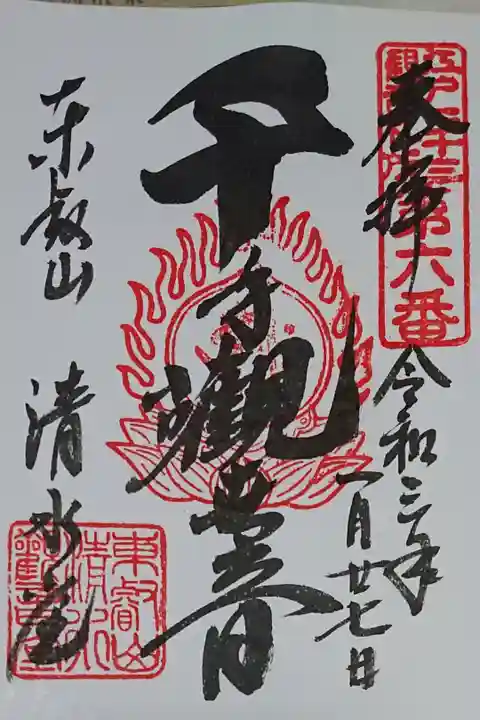 奉拝
江戸三十三
観音札所
第六番
令和三年
一月廿七日
千手観世音
東叡山
清水堂
東叡山
清水